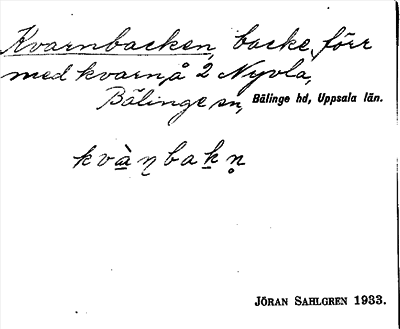 Kvarnbacken, backe, förr
med kvarn, å 2 Nyvla,
Bälinge sn, Bälinge hd, Uppsala län.
kvàṇbakṇ̥
JÖRAN SAHLGREN 1933.